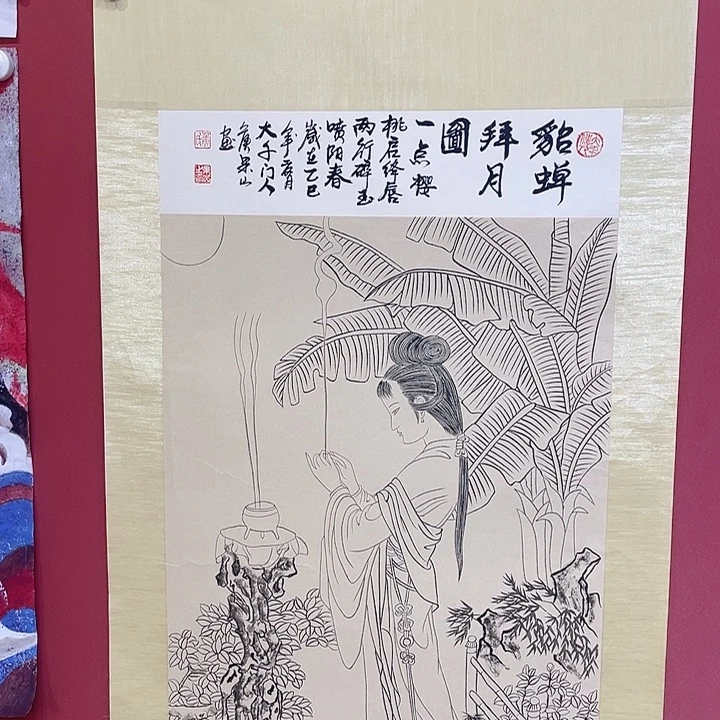 貂蝉
拜月
圖
一点樱
桃启绛唇
两行碎玉
喷阳春
歲在乙巳
年 月
大千门人
山
画